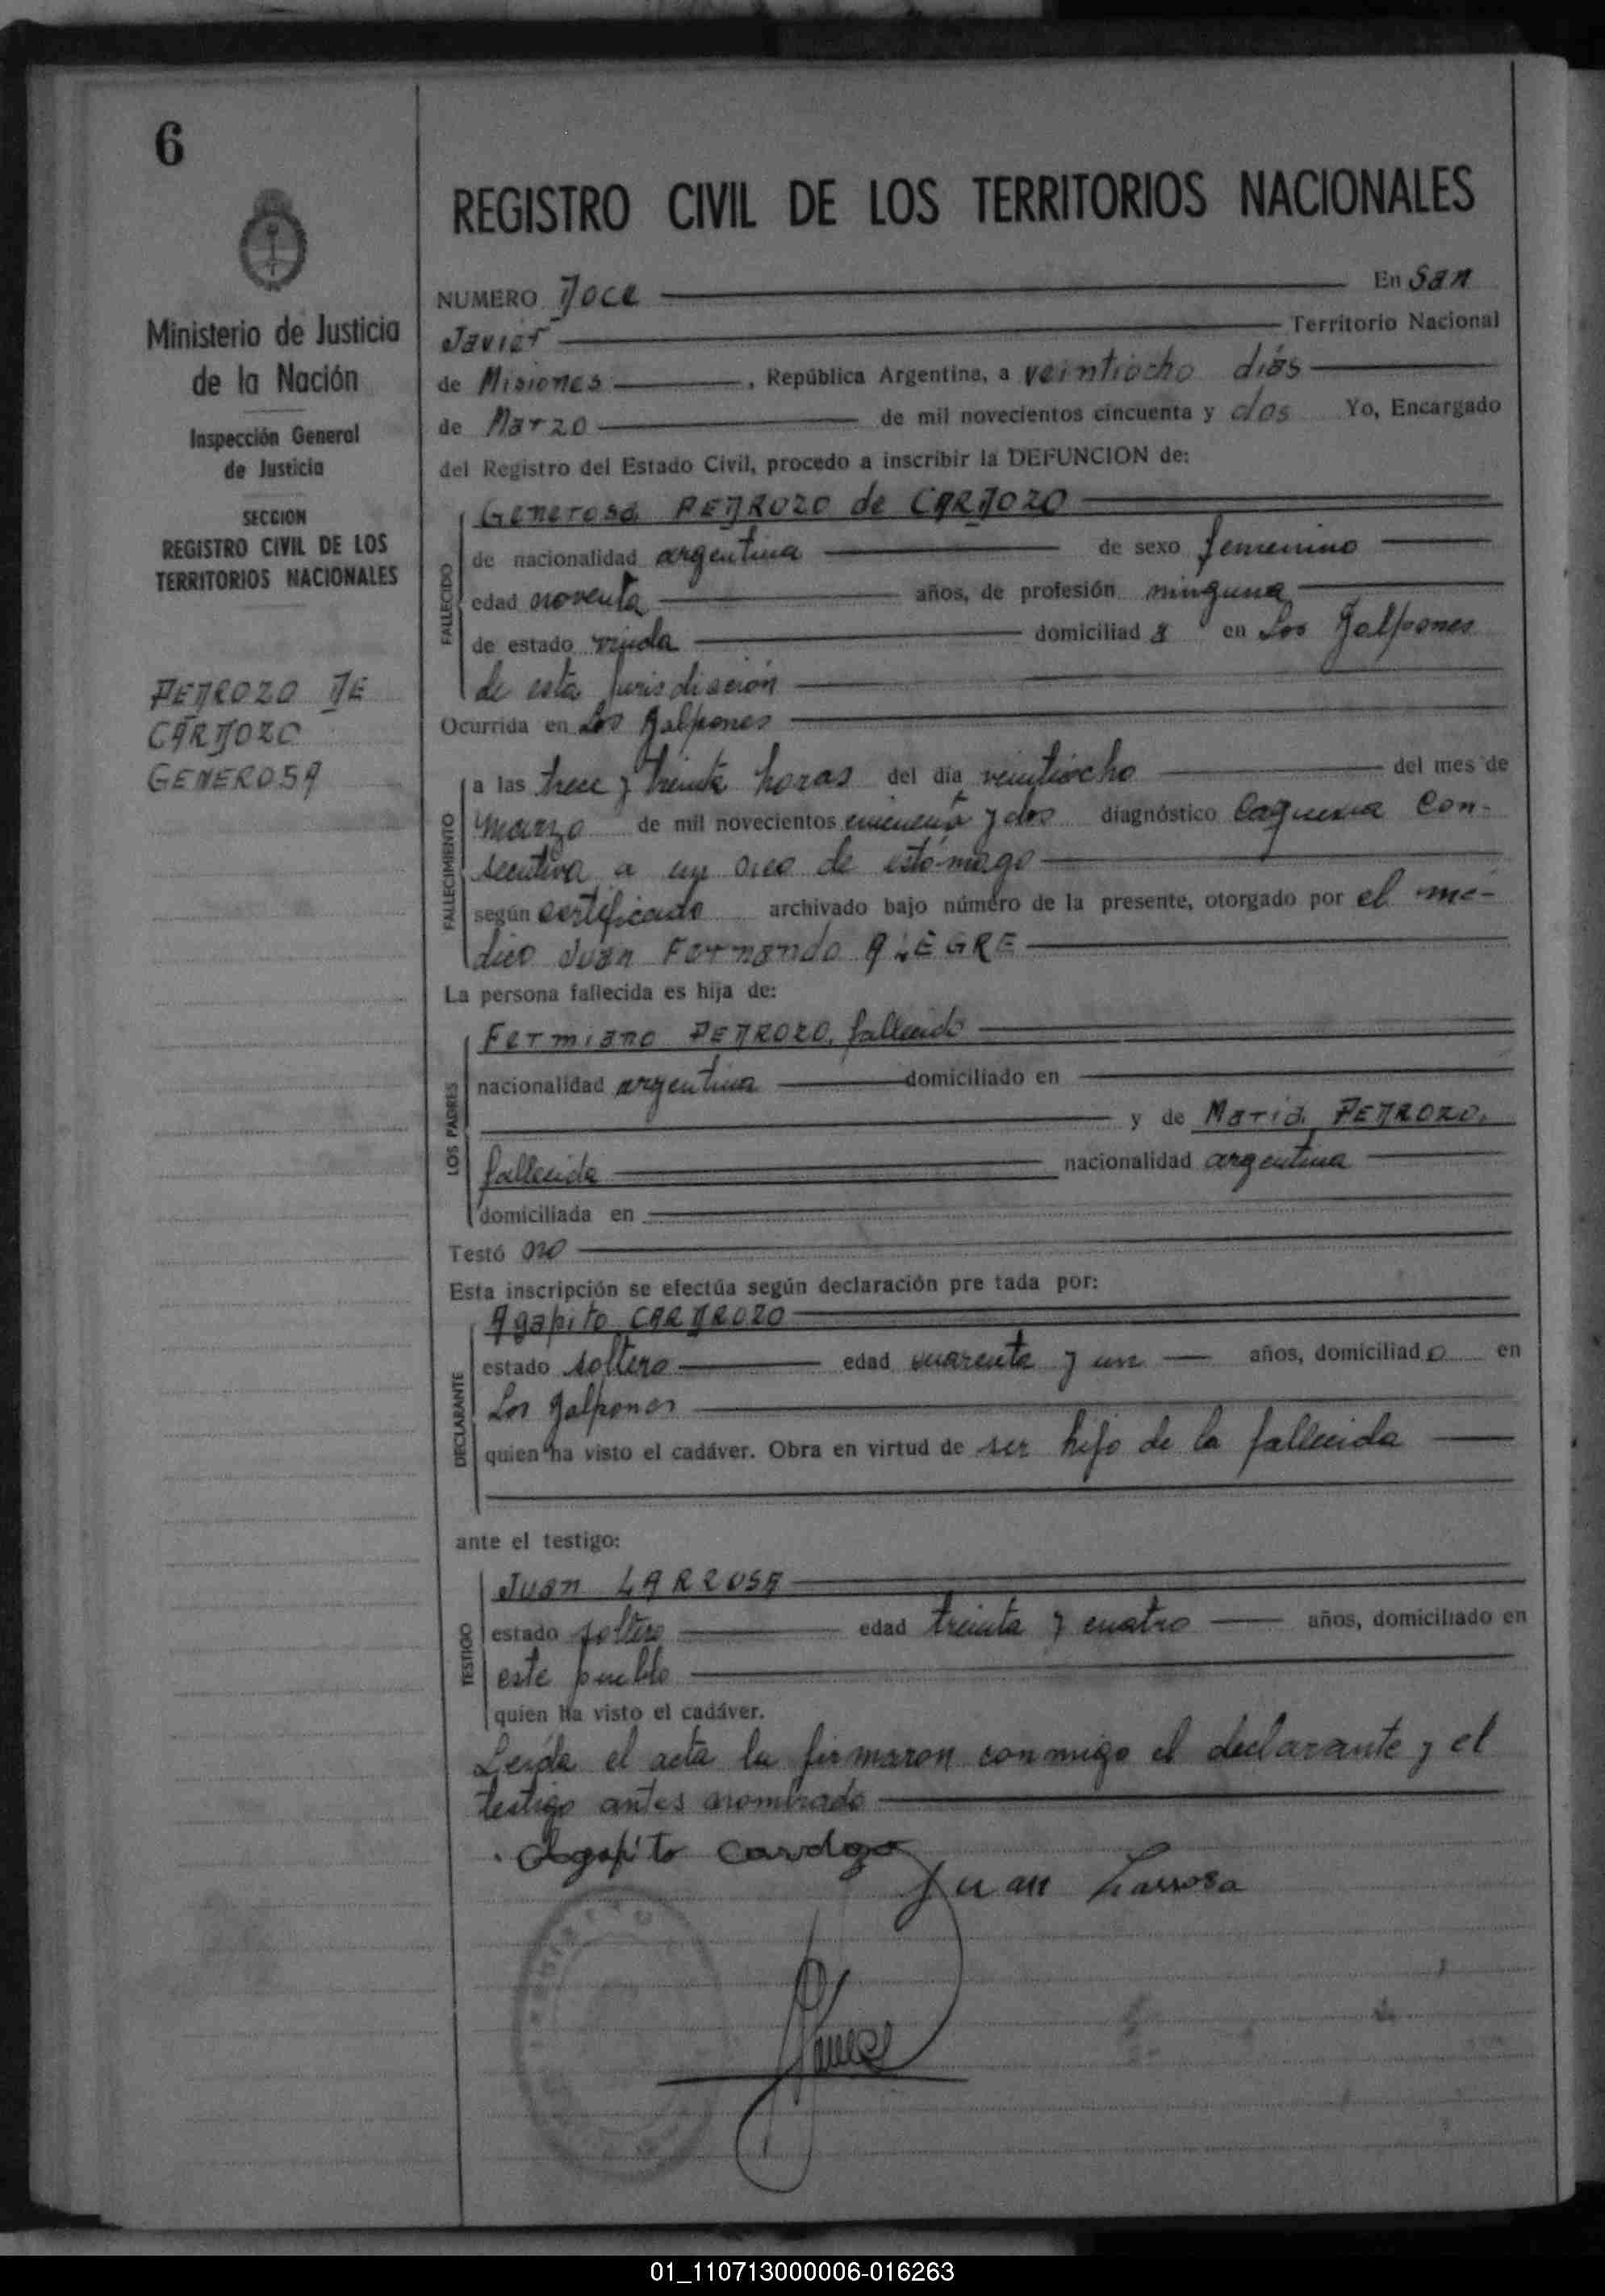 6
REGISTRO CIVIL DE LOS TERRITORIOS NACIONALES
Ministerio de Justicia
de la Nación
Inspección General
de Justicia
SECCION
REGISTRO CIVIL DE LOS
TERRITORIOS NACIONALES
PEDROZO DE
CARDOZO
GENEROSA
NUMERO Doce En San
Javier Territorio Nacional
de Misiones , República Argentina, a veintiocho días
de Marzo de mil novecientos cincuenta y dos Yo, Encargado
del Registro del Estado Civil, procedo a inscribir la DEFUNCION de:
Generosa PEDROZO de CARDOZO
FALLECIDO
de nacionalidad argentina de sexo femenino
edad noventa años, de profesión ninguna
de estado viuda domiciliad a en Los Galpones
de esta jurisdicción
Ocurrida en Los Galpones
FALLECIMIENTO
a las trece y treinta horas del día veintiocho del mes de
marzo de mil novecientos cincuenta y dos diagnóstico Caquexia Con-
secutiva a un de estómago
según certificado archivado bajo número de la presente, otorgado por el mé-
dico Juan Fernando ALEGRE
La persona fallecida es hija de:
LOS PADRES
Fermiano PEDROZO, fallecido
nacionalidad argentina domiciliado en
y de María PEDROZO,
fallecida nacionalidad argentina
domiciliada en
Testó no
Esta inscripción se efectúa según declaración pre tada por:
DECLARANTE
Agapito CARDROZO
estado soltero edad cuarenta y un años, domiciliad o en
Los Galpones
quien ha visto el cadáver. Obra en virtud de ser hijo de la fallecida
ante el testigo:
TESTIGO
Juan LARROSA
estado soltero edad treinta y cuatro años, domiciliado en
este pueblo
quien ha visto el cadáver.
Leída el acta la firmaron conmigo el declarante y el
testigo antes nombrado
Agapito Cardozo
Juan Larrosa
01_110713000006-016263